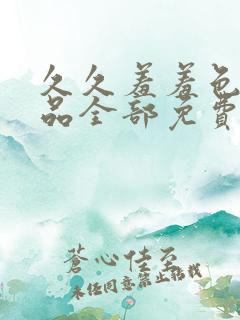 久久羞羞色
品全部免费
蒼心佳至
未经同意禁止转载